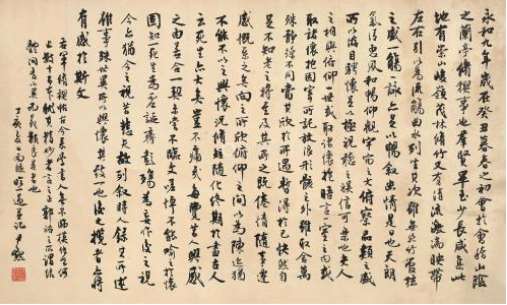 永和九年歲在癸丑暮春之初會於會稽山陰
之蘭亭脩稧事也羣賢畢至少長咸集此
地有崇山峻領茂林脩竹又有清流激湍映帶
左右引以為流觴曲水列坐其次雖無絲竹管弦
之盛一觴一詠亦足以暢叙幽情是日也天朗
氣清惠風和暢仰觀宇宙之大俯察品類之盛
所以遊目騁懷足以極視聽之娛信可樂也夫人
之相與俯仰一世或取諸懷抱悟言一室之內或
因寄所託放浪形骸之外雖趣舍萬
殊靜躁不同當其欣於所遇暫得於己快然自
足不知老之將至及其所之既惓情隨事遷
感慨係之矣向之所欣俯仰之間以為陳迹猶
不能不以之興懷況脩短隨化終期於盡古人
云死生亦大矣豈不痛哉每覽昔人興感
之由若合一契未嘗不臨文嗟悼不能喻之於懷
固知一死生為虛誕齊彭殤為妄作後之視
今亦猶今之視昔悲夫故列叙時人錄其所述
雖世殊事異所以興懷其致一也後之攬者亦將
有感於斯文
右軍脩稧帖古今
尹默